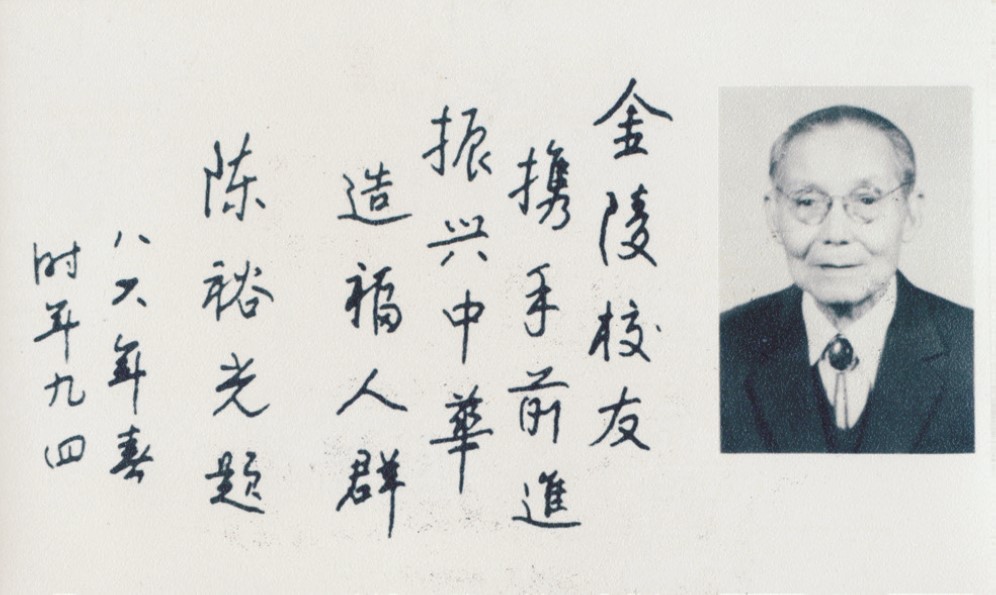 金陵校友
携手前進
振兴中華
造福人群
陈裕光题
八六年春
时年九四